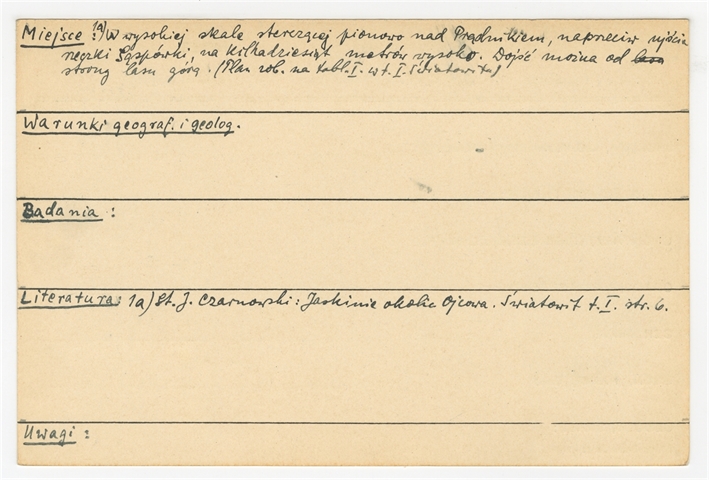 Miejsce : 1a) W wysokiej skale sterczącej pionowo nad Prądnikiem, naprzeciw ujścia
rzeczki Sąspówki, na kilkadziesiąt metrów wysoko. Dojść można od
strony lasu górą. (Plan rob. na tabl. I. w t. I. Światowita)
Warunki geograf. i geolog.
Badania :
Literatura: 1a) St. J. Czarnowski: Jaskinie okolic Ojcowa. Światowit t. I. str. 6.
Uwagi :